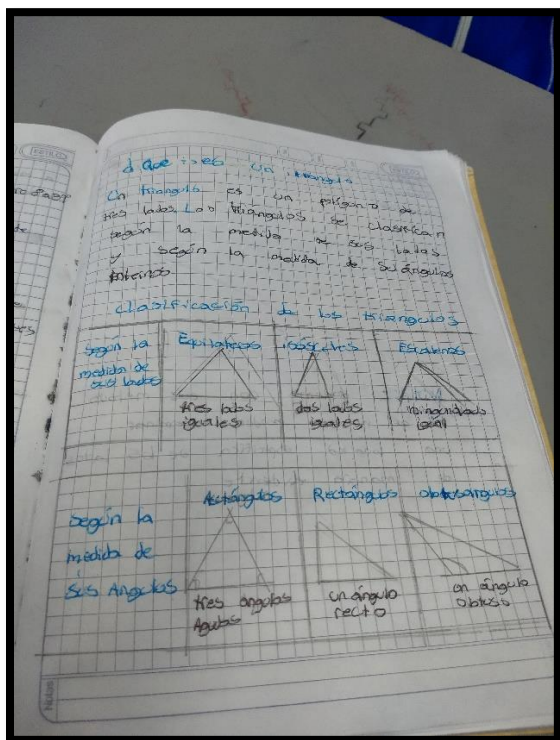 ¿Que es un triangulo
Un triangulo es un poligono de
tres lados. Los triangulos se clasifican
según la medida de sus lados
y según la medida de su ángulos
interinos
clasificación de los triangulos
según la medida de sus lados
Equilateros
isósceles
Escalenos
tres lados iguales
dos lados iguales
ningun lado igual
según la medida de sus Angulos
Actángulos
Rectángulos
obtusangulos
tres angulos Agudos
un ángulo recto
un ángulo obtuso
Notas